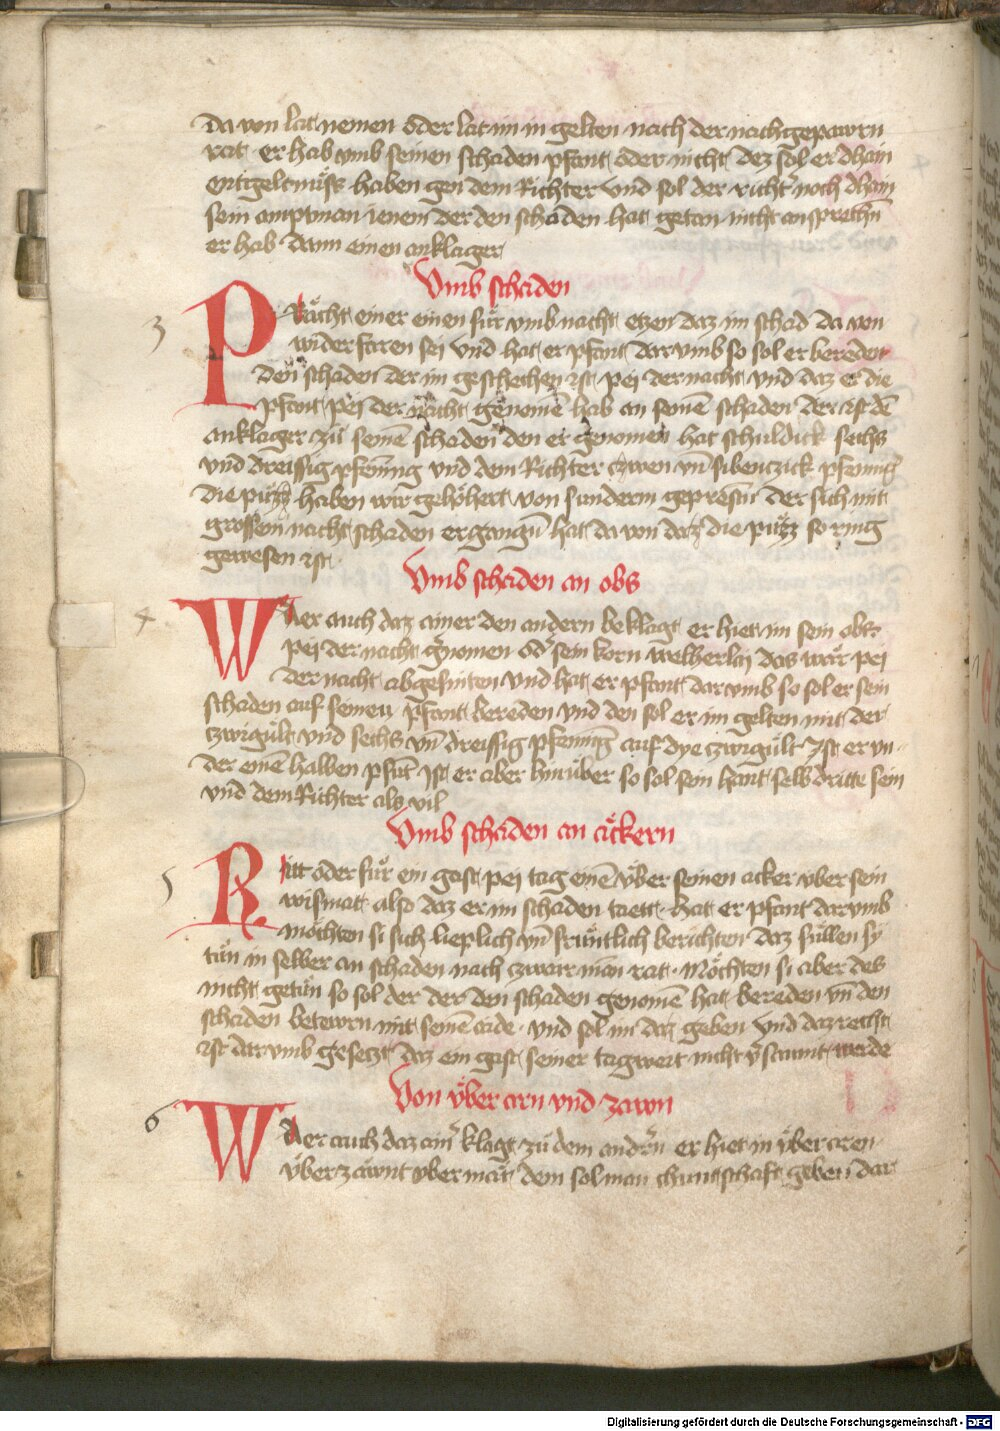 da von lat nemen oder lat im in gelten nach der nachgepawrn
rat · er hab vmb seinen schaden pfant oder nicht dez sol er dhain
entgeltnüss haben gen dem Richter vnd sol der richter noch dhain
sein amptman ienem der den schaden hat getan nicht ansprechen
er hab dann einen anklager
Vmb schaden
3
Prächt einer einen für vmb nacht etzen daz im schad da von
widerfaren sei vnd hat er pfant dar vmb so sol er bereden
den schaden der im geschechen ist pei der nacht vnd daz er die
pfant pei der nacht genomē hab an seinē schaden der ist dē
anklager zu seinē schaden den er genomen hat schuldick sechs
vnd dreissig pfenning vnd dem Richter czwen vn̄ sibenczick pfennig
die püzz haben wir gehöhert von sunderm geprestn̄ der sich mit
grossem nacht schaden ergangn̄ hat da von daz die püzz so ring
gewesen ist
Vmb schaden an obs
4
Wder auch daz ainer den andern beklagt er hiet im sein obs
pei der nacht genomen od' sein korn welherlaj das wär pei
der nacht abgesniten vnd hat er pfant dar vmb so sol er sein
schaden auf seinem pfant bereden vnd den sol er im gelten mit der
czwigült vnd sechs vn̄ dreissig pfenning auf dye czwigült Ist er vn
der einē halben pfūt Ist er aber hinüber so sol sein hant selb dritte sein
vnd dem Richter als vil
Vmb schaden an äckern
5
Ritt oder für ein gast pei tag einē über seinen acker vber sein
wismat also daz er im schaden taett hat er pfant dar vmb
möchten si sich lieplich vn̄ früntlich berichten daz süllen sy
tün in selber an schaden nach zwair man rat · Möchten si aber des
nicht getün so sol der der den schaden genomē hat bereden vn̄ den
schaden betewrn mit seinē aide · vnd sol im daz geben vnd daz recht
ist dar vmb gesetzt daz ein gast seiner tagweit nicht v'saumt werde
Von über arn vnd zawn
6
Wder auch daz ain' klagt zu dem andern er hiet in über aren
über zäunt vber mät dem sol man chuntschaft geben dar
Digitalisierung gefördert durch die Deutsche Forschungsgemeinschaft - DFG